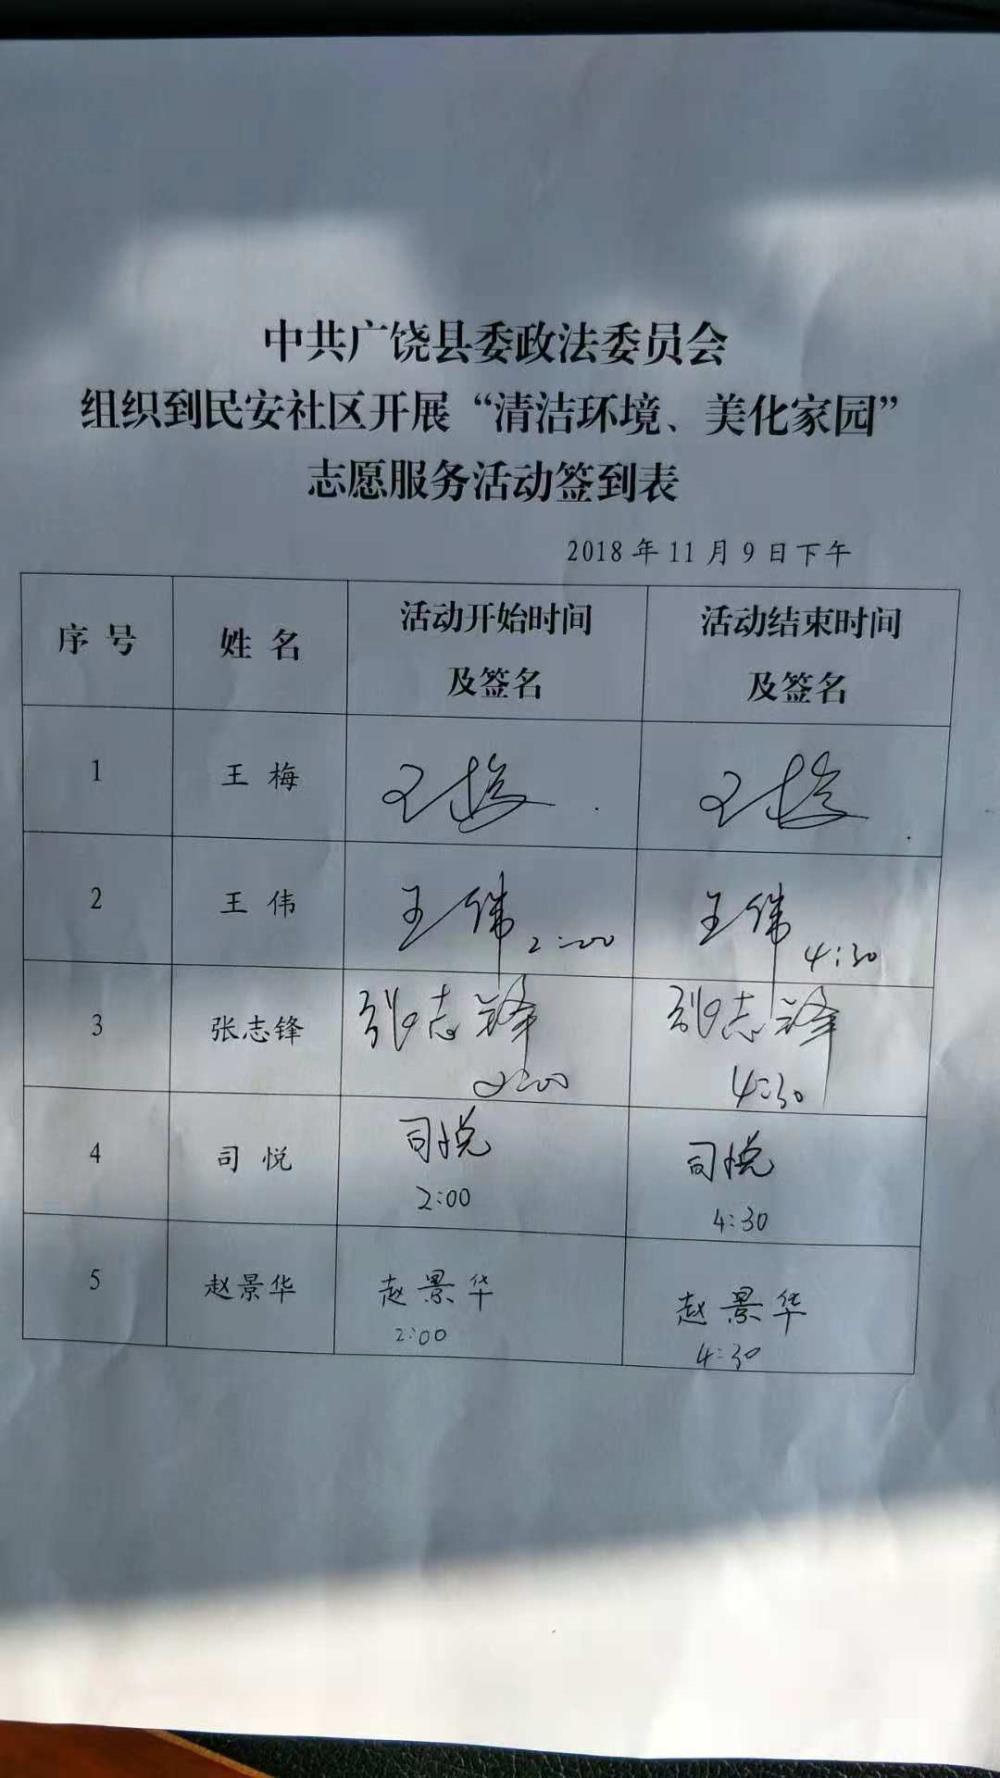 中共广饶县委政法委员会
组织到民安社区开展“清洁环境、美化家园”
志愿服务活动签到表
2018年11月9日下午
序号 姓名 活动开始时间及签名 活动结束时间及签名
1 王梅 王梅 王梅
2 王伟 王伟 2:00 王伟 4:30
3 张志锋 张志锋 2:00 张志锋 4:30
4 司悦 司悦 2:00 司悦 4:30
5 赵景华 赵景华 2:00 赵景华 4:30